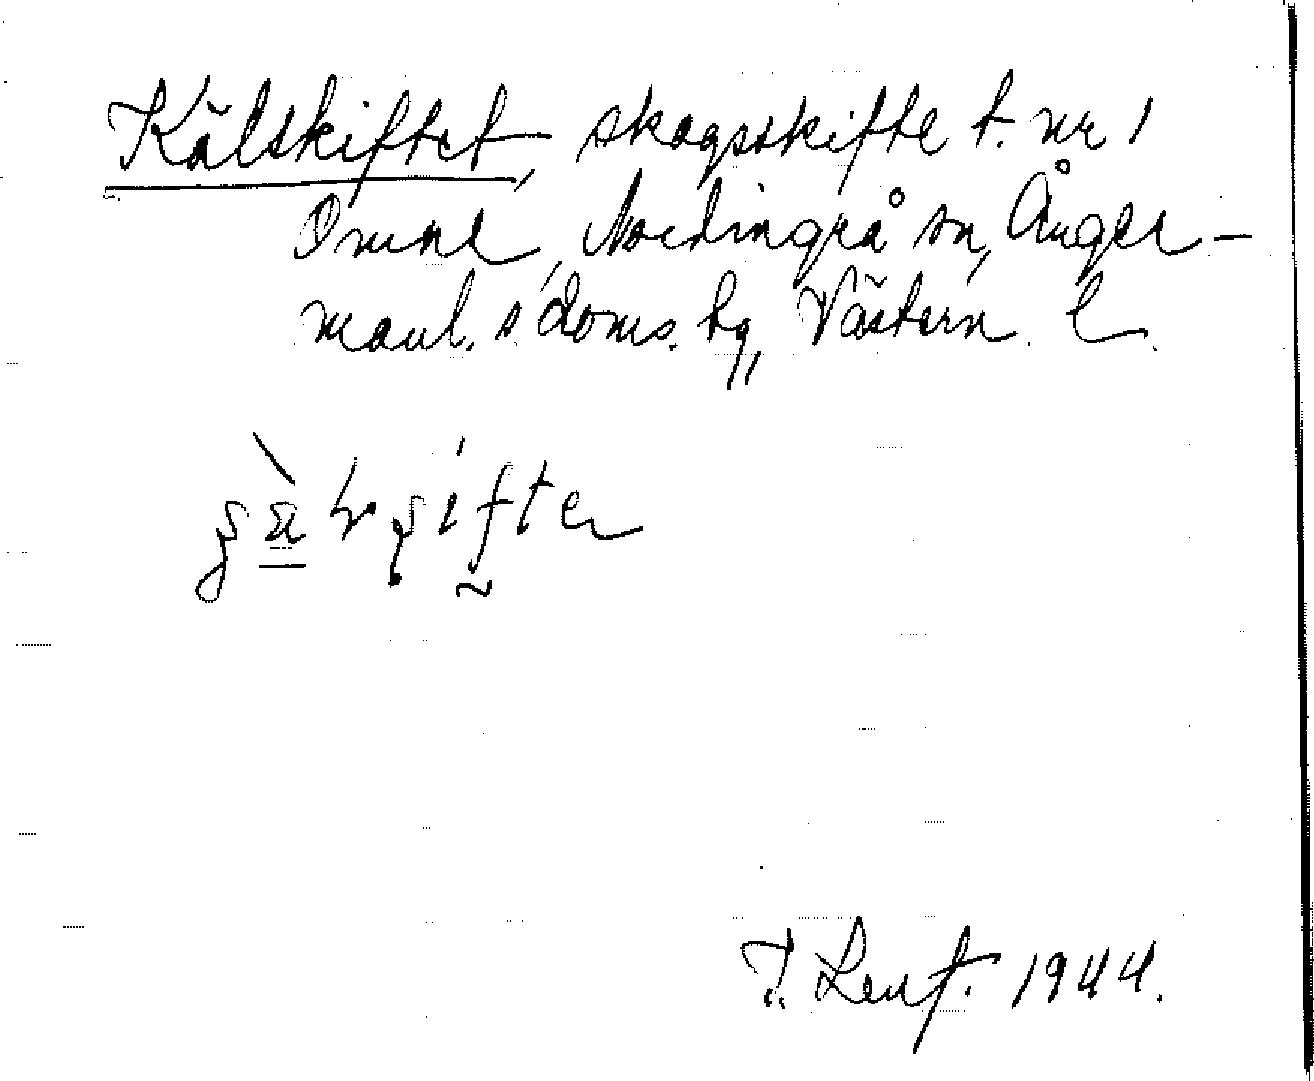 Kälskiftet, skogsskifte t. nr 1
Omne, Nordingrå sn, Ånger-
manl. s. doms. hg, Västern. l.
T. Lenf. 1944.